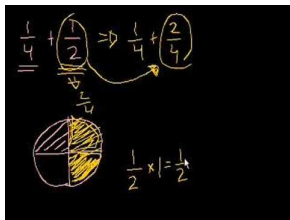 1/4 + 1/2 ⇒ 1/4 + 2/4
2/4
1/2 × 1 = 1/2